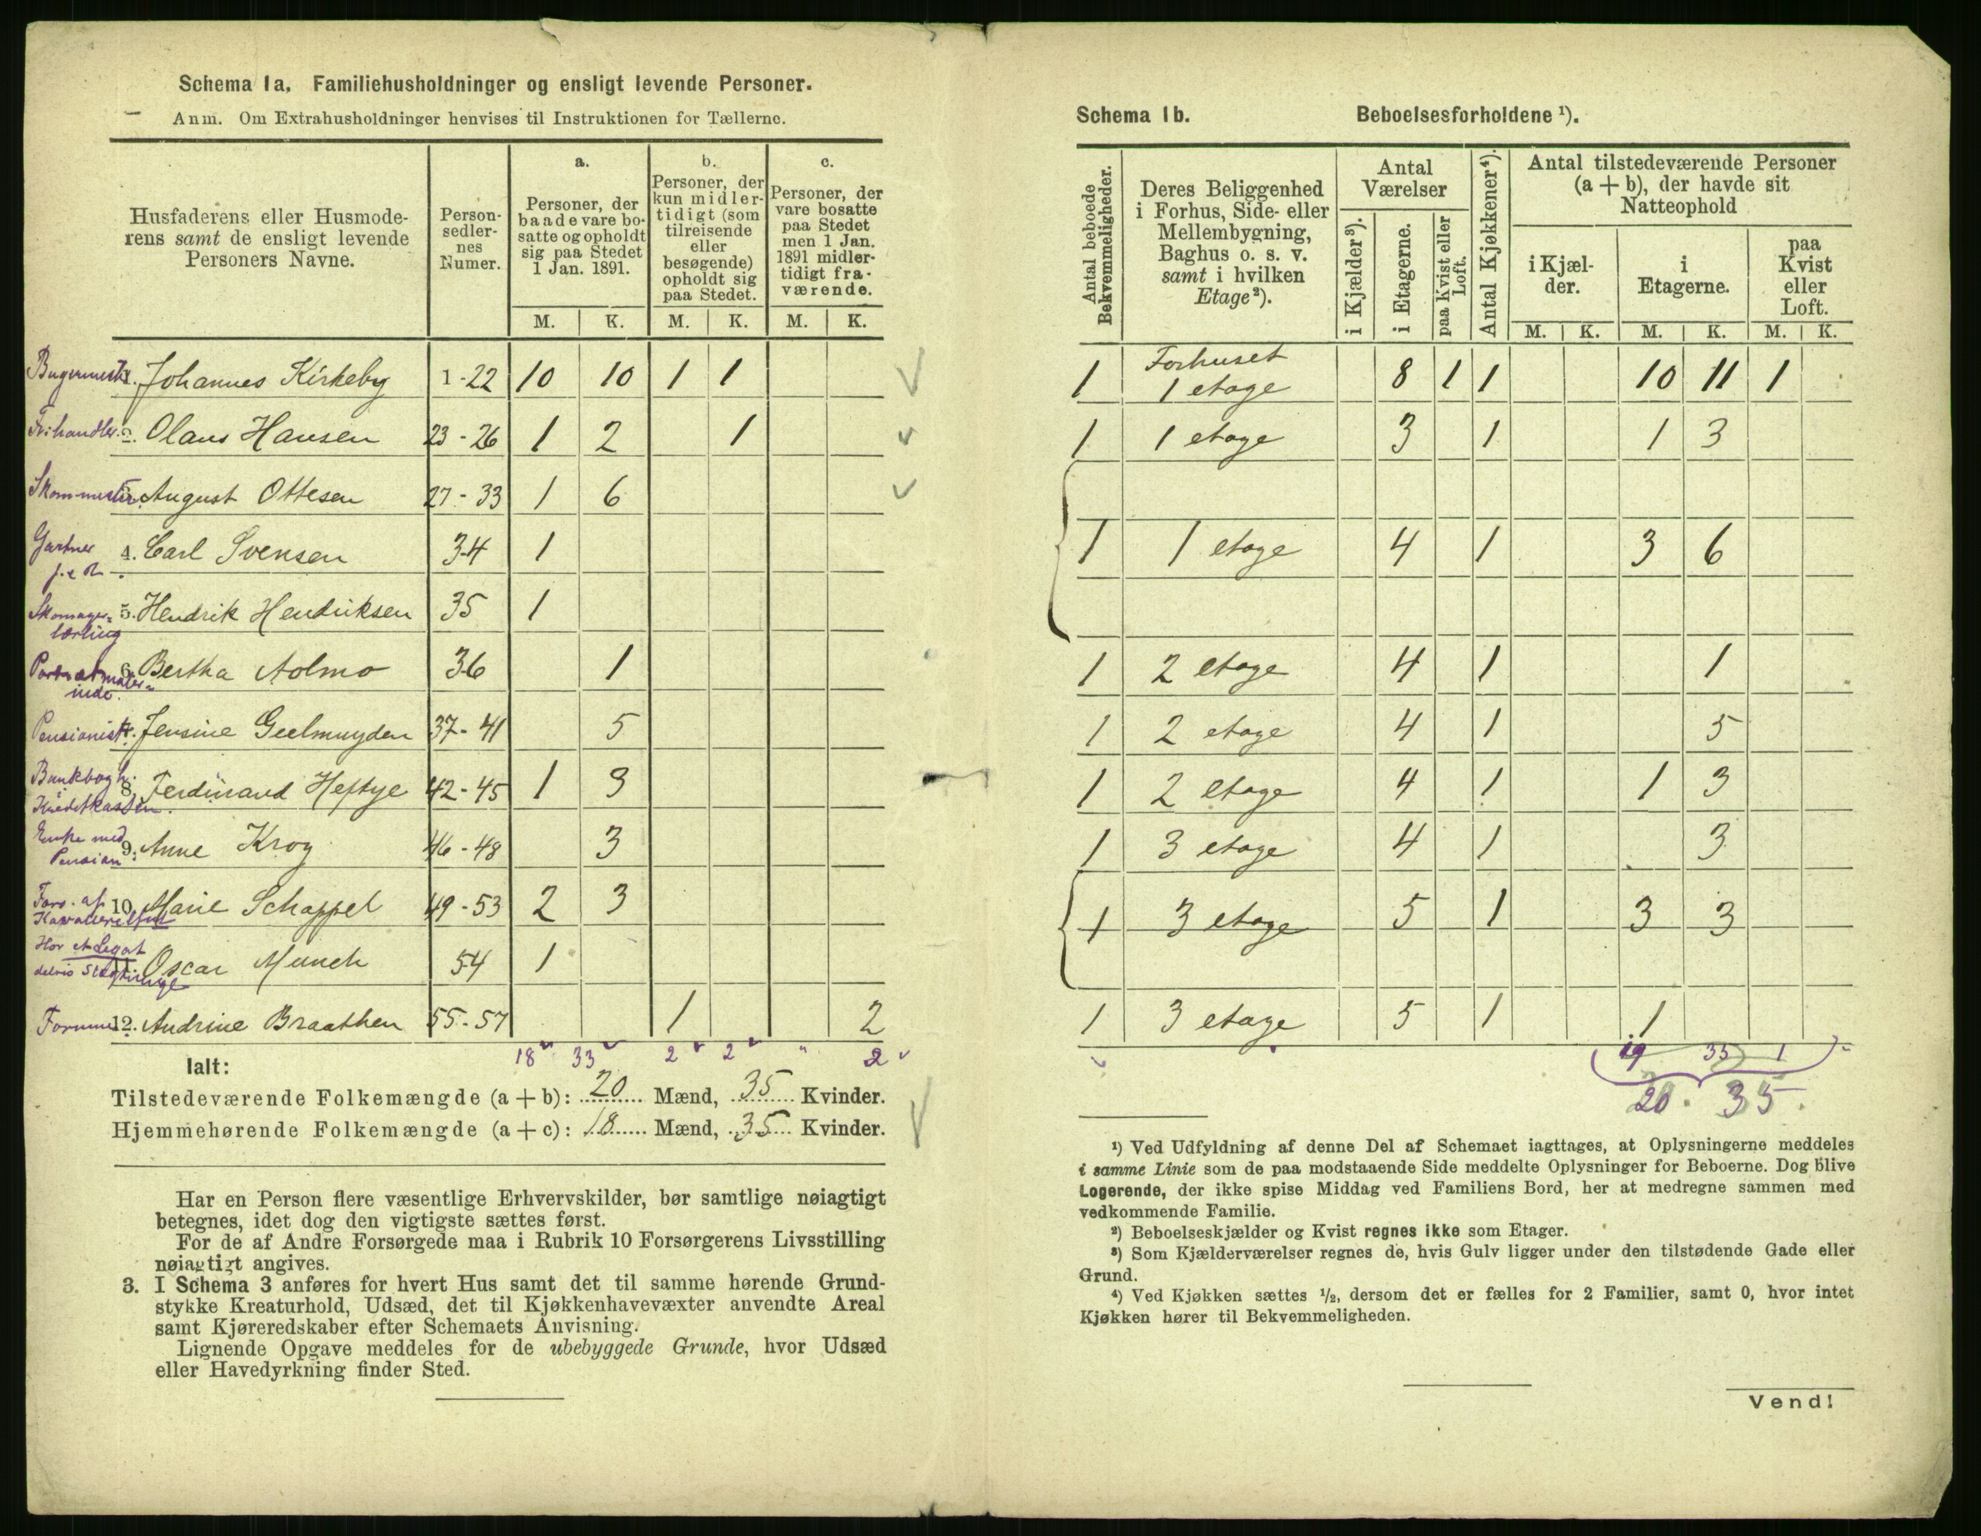 Schema 1a. Familiehusholdninger og ensligt levende Personer.
Anm. Om Extrahusholdninger henvises til Instruktionen for Tællerne.
Husfaderens eller Husmode-
rens samt de ensligt levende
Personers Navne.
Person-
sedler-
nes
Numer.
a.
Personer, der
baade vare bo-
satte og opholdt
sig paa Stedet
1 Jan. 1891.
b.
Personer, der
kun midler-
tidigt (som
tilreisende
eller
besøgende)
opholdt sig
paa Stedet.
c.
Personer, der
vare bosatte
paa Stedet
men 1 Jan.
1891 midler-
tidigt fra-
værende.
M. K. M. K. M. K.
1. Johannes Kirkeby 1-22 10 10 1 1
2. Olaus Hansen 23-26 1 2 1
3. August Ottesen 27-33 1 6
Gartner 4. Carl Svensen 34 1
Skomager-
lærling
5. Hendrik Hendriksen 35 1
6. Bertha Aolmo 36 1
Pensionist 7. Jensine Geelmuyden 37-41 5
8. Ferdinand Heftye 42-45 1 3
Kreditkassen.
Enke med
Pension
9. Anne Krog 46-48 3
10. Marie Schappel 49-53 2 3
11. Oscar Munch 54 1
12. Andrine Braathen 55-57 1 2
18 33 2 2 " 2
Ialt:
Tilstedeværende Folkemængde (a + b): 20 Mænd, 35 Kvinder.
Hjemmehørende Folkemængde (a + c): 18 Mænd, 35 Kvinder.
Har en Person flere væsentlige Erhvervskilder, bør samtlige nøiagtigt
betegnes, idet dog den vigtigste sættes først.
For de af Andre Forsørgede maa i Rubrik 10 Forsørgerens Livsstilling
nøiagtigt angives.
3. I Schema 3 anføres for hvert Hus samt det til samme hørende Grund-
stykke Kreaturhold, Udsæd, det til Kjøkkenhavevæxter anvendte Areal
samt Kjøreredskaber efter Schemaets Anvisning.
Lignende Opgave meddeles for de ubebyggede Grunde, hvor Udsæd
eller Havedyrkning finder Sted.
Schema 1b. Beboelsesforholdene ¹).
Antal beboede
Bekvemmeligheder.
Deres Beliggenhed
i Forhus, Side- eller
Mellembygning,
Baghus o. s. v.
samt i hvilken
Etage²).
Antal
Værelser
i Kjælder³).
i Etagerne.
paa Kvist eller
Loft.
Antal Kjøkkener⁴).
Antal tilstedeværende Personer
(a + b), der havde sit
Natteophold
i Kjæl-
der.
i
Etagerne.
paa
Kvist
eller
Loft.
M. K. M. K. M. K.
Forhuset
1 1 etage 8 1 1 10 11 1
1 1 etage 3 1 1 3
1 1 etage 4 1 3 6
1 2 etage 4 1 1
1 2 etage 4 1 5
1 2 etage 4 1 1 3
1 3 etage 4 1 3
1 3 etage 5 1 3 3
1 3 etage 5 1 1
19 35 1
20. 35.
¹) Ved Udfyldning af denne Del af Schemaet iagttages, at Oplysningerne meddeles
i samme Linie som de paa modstaaende Side meddelte Oplysninger for Beboerne. Dog blive
Logerende, der ikke spise Middag ved Familiens Bord, her at medregne sammen med
vedkommende Familie.
²) Beboelseskjælder og Kvist regnes ikke som Etager.
³) Som Kjælderværelser regnes de, hvis Gulv ligger under den tilstødende Gade eller
Grund.
⁴) Ved Kjøkken sættes ½, dersom det er fælles for 2 Familier, samt 0, hvor intet
Kjøkken hører til Bekvemmeligheden.
Vend!